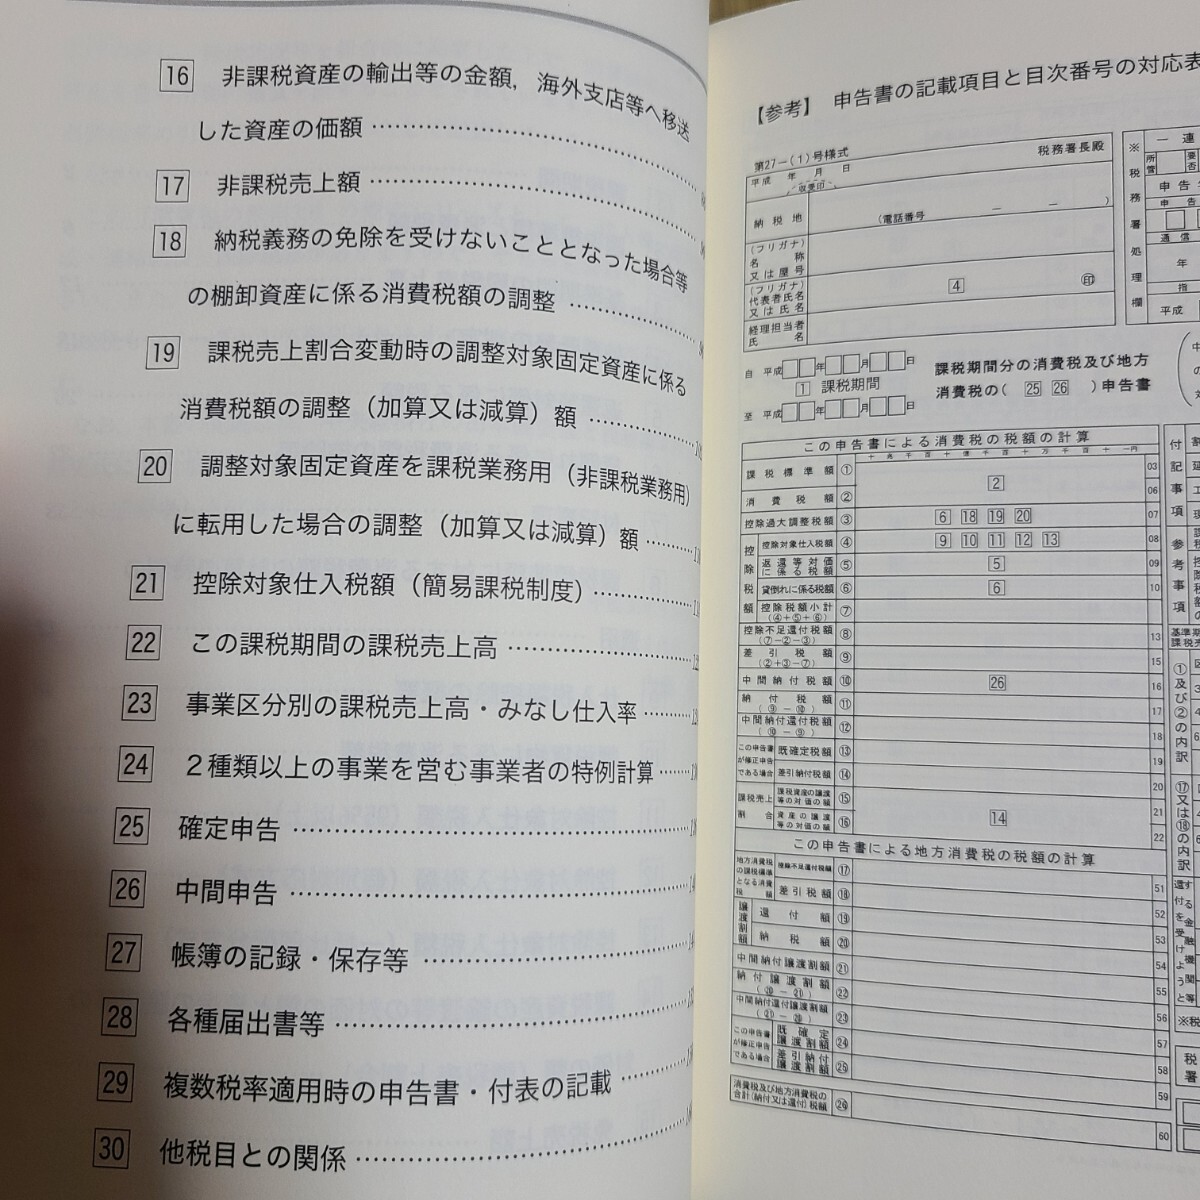 16 非課税資産の輸出等の金額，海外支店等へ移送
した資産の価額
17 非課税売上額
18 納税義務の免除を受けないこととなった場合等
の棚卸資産に係る消費税額の調整
19 課税売上割合変動時の調整対象固定資産に係る
消費税額の調整（加算又は減算）額
20 調整対象固定資産を課税業務用（非課税業務用）
に転用した場合の調整（加算又は減算）額
21 控除対象仕入税額（簡易課税制度）
22 この課税期間の課税売上高
23 事業区分別の課税売上高・みなし仕入率
24 2種類以上の事業を営む事業者の特例計算
25 確定申告
26 中間申告
27 帳簿の記録・保存等
28 各種届出書等
29 複数税率適用時の申告書・付表の記載
30 他税目との関係
【参考】 申告書の記載項目と目次番号の対応表
第27－(1)号様式
平成 年 月 日 税務署長殿
収受印
納税地
(電話番号 － － )
(フリガナ)
名称
又は屋号
(フリガナ)
代表者氏名
又は氏名 4 印
経理担当者
氏名
自 平成 年 月 日
1 課税期間
至 平成 年 月 日
課税期間分の消費税及び地方
消費税の( 25 26 )申告書
この申告書による消費税の税額の計算
十 兆 千 百 十 億 千 百 十 万 千 百 十 一円
課税標準額 ① 2 03
消費税額 ② 06
控除過大調整税額 ③ 6 18 19 20 07
控除税額
控除対象仕入税額 ④ 9 10 11 12 13 08
返還等対価
に係る税額 ⑤ 5 09
貸倒れに係る税額 ⑥ 6 10
控除税額小計
(④+⑤+⑥) ⑦
控除不足還付税額
(⑦－②－③) ⑧ 13
差引税額
(②+③－⑦) ⑨ 15
中間納付税額 ⑩ 26 16
納付税額
(⑨－⑩) ⑪ 17
中間納付還付税額
(⑩－⑨) ⑫ 18
この申告書
が修正申告
である場合
既確定税額 ⑬ 19
差引納付税額 ⑭ 20
課税売上
割合
課税資産の譲渡
等の対価の額 ⑮ 21
資産の譲渡
等の対価の額 ⑯ 14 22
この申告書による地方消費税の税額の計算
地方消費税
の課税標準
となる消費
税額
控除不足還付税額 ⑰ 51
差引税額 ⑱ 52
譲渡割額
還付額 ⑲ 53
納税額 ⑳ 54
中間納付譲渡割額 ㉑ 55
納付譲渡割額
(⑳－㉑) ㉒ 56
中間納付還付譲渡割額
(㉑－⑳) ㉓ 57
この申告書
が修正申告
である場合
既確定
譲渡割額 ㉔ 58
差引納付
譲渡割額 ㉕ 59
消費税及び地方消費税の
合計(納付又は還付)税額 ㉖ 60
※税務署処理欄
一連
所管
要否
申告
申告
通信
年
指
平成
付記事項
参考事項
基準期
課税売
①及び②の内訳
⑰又は⑱の内訳
還付を受けようと
する金融機関等
※税
税
署